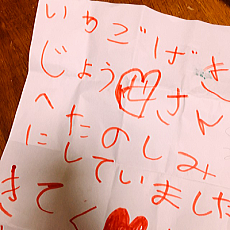 いわごげき
じょうせさん
へたのしみ
にしていました
きてく